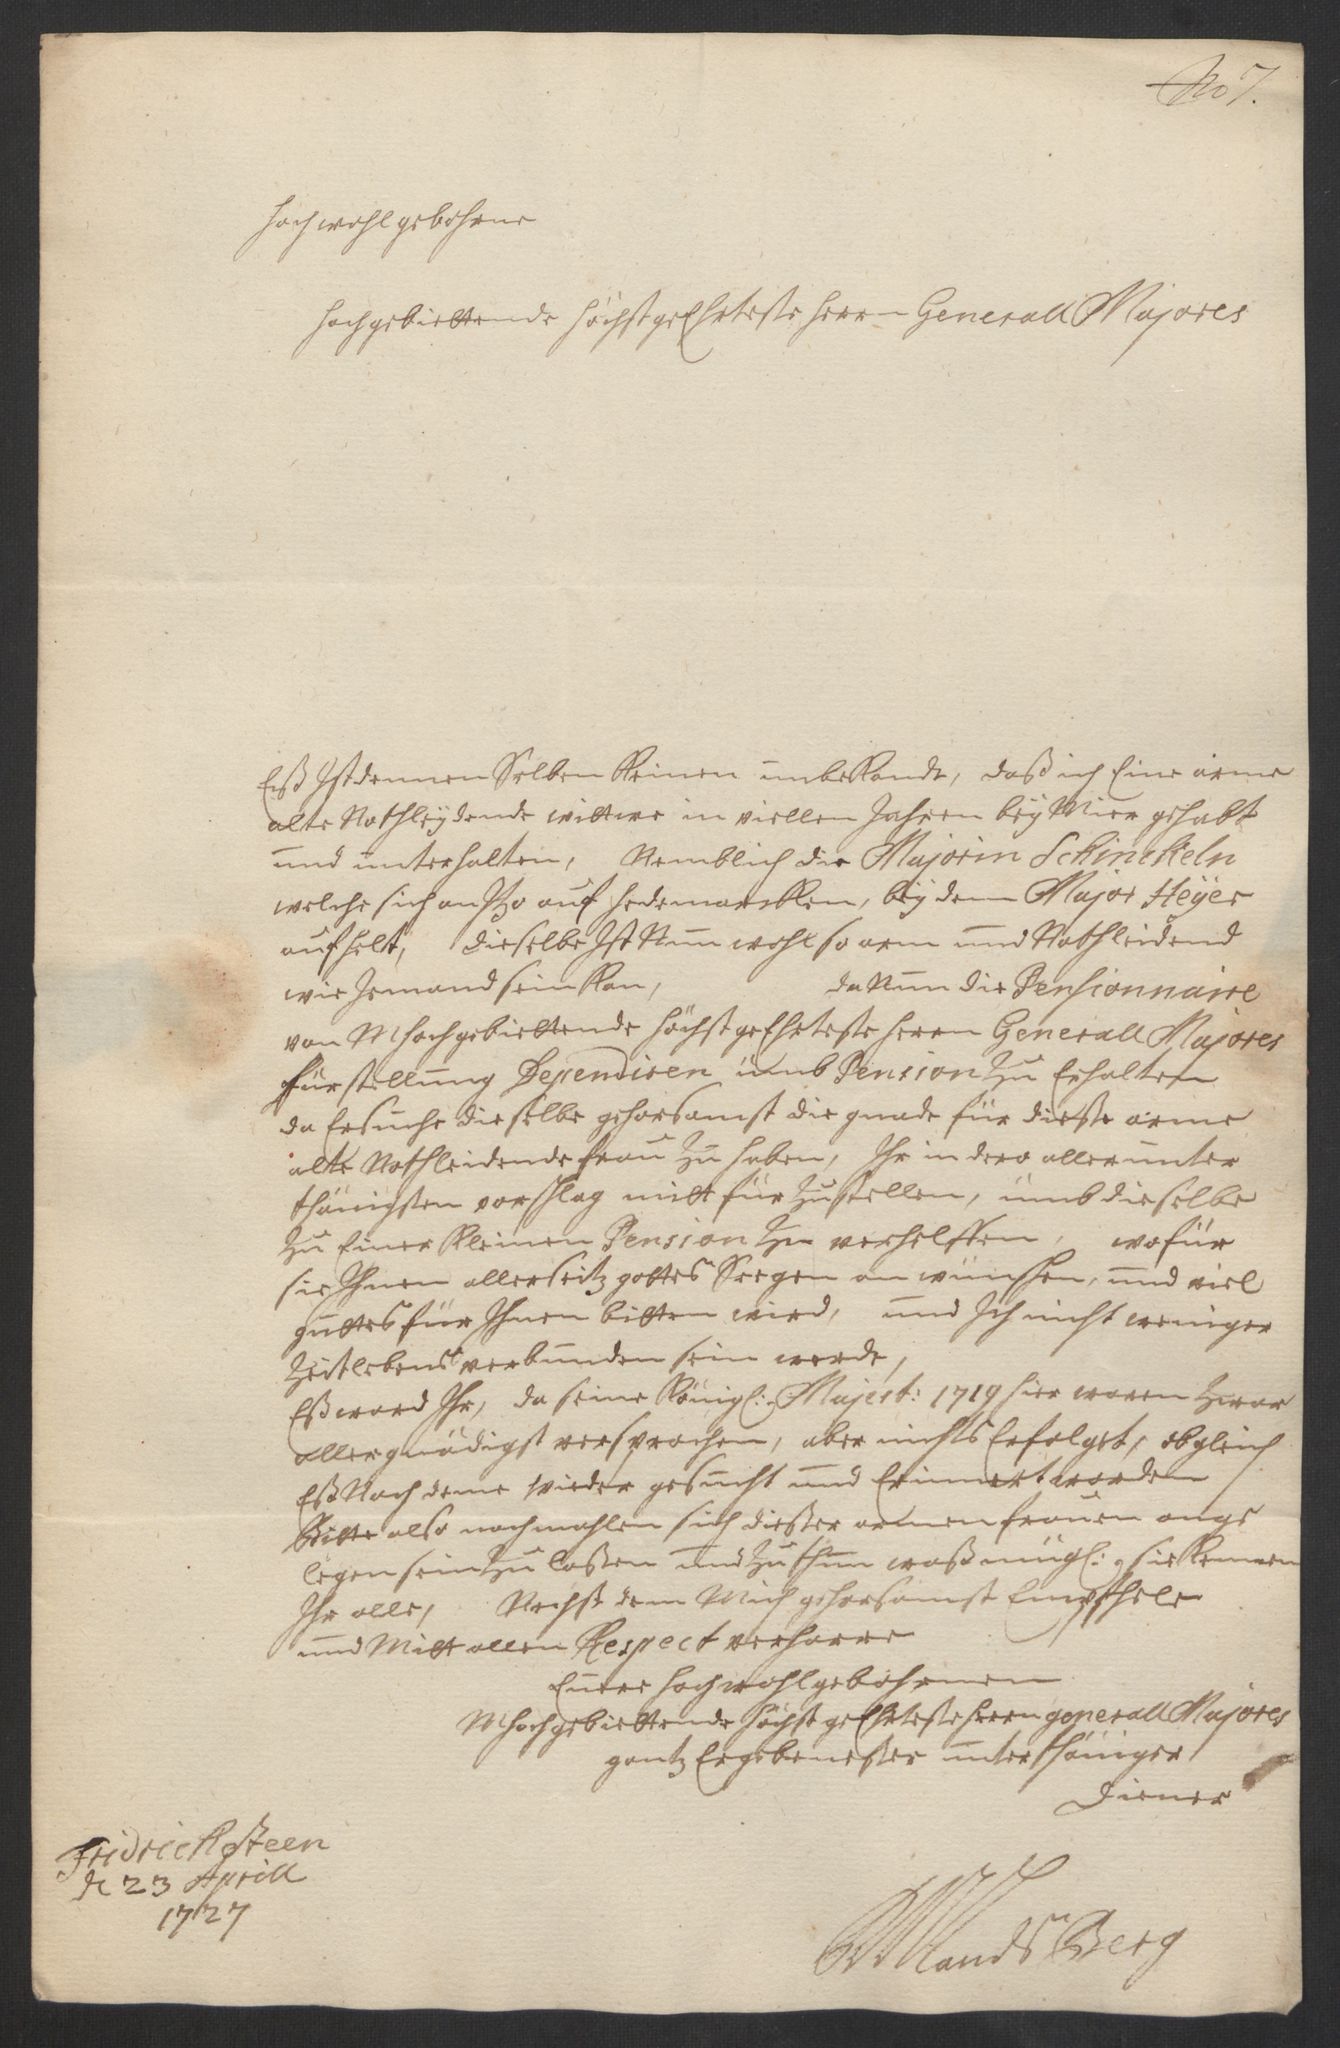 No 7.
Hochwohlgebohrne
Hochgebiettende Höchstgeehrteste Herrn Generall Majores
Eß Ist dennen Selben Keinen unbekandt, daß ich Eine arme
alte Nothleÿdende wittwe in viellen Jahren beÿ Mier gehabt
und unterhalten, Nemblich die Majorin Schinckeln
welche sich an Itzo auf Hedemarcken, beÿ dem Major Heÿer
aufhelt, dieselbe Ist Nun wohl so arm und Nothleidend
wie Jemand sein Kan, da Nun die Pensionnaire
von M Hochgebiettende Höchstgeehrteste Herrn Generall Majores
fürstellung Dependiren umb Pension zu Erhalten
da Ersuche dieselbe gehorsamst die gnade für dieße arme
alte Nothleidende frau zu haben, Ihr in dero allerunter
thänigsten vorschlag mitt für zu stellen, umb dieselbe
zu Einer Kleinen Pension zu verhelffen, wofür
sie Ihnen allerseitz gottes Seegen an wünschen, und viel
guttes für Ihnen bitten wird, und Ich nicht weniger
Zeitlebens verbunden sein werde,
Eß ward Ihr, da seine Königl: Majest: 1719 hier waren zwar
allergnädigst versprochen, aber nichts Erfolget, obgleich
Eß Nach deme wieder gesucht und Erinnert worden
Bitte also nochmahlen sich dießer armen frauen ange
legen sein zu laßen und zu thun waß mügl: sie Kennen
Ihr alle, Nechst dem Mich gehorsamst Empfhele
und Mitt allen Respect verharre
Euere Hochwohlgebohrnen
M Hochgebiettende Höchstgeehrteste Herrn generall Majores
gantz Ergebenester unterthäniger
Diener
Fridrichßteen
d 23 Aprill
1727
Landsberg